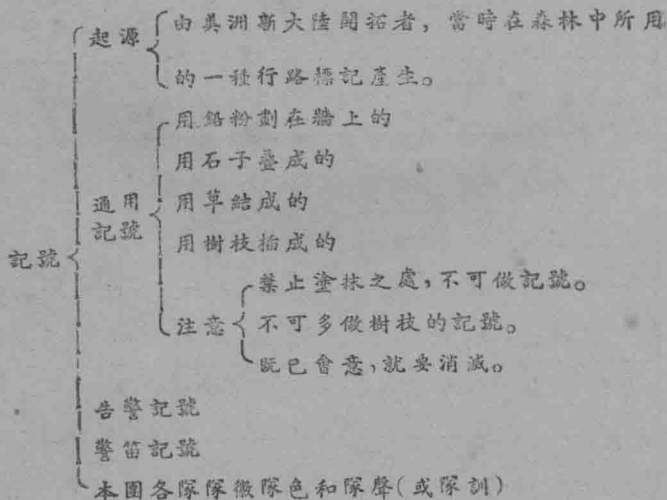 起源
由美洲新大陸開拓者，當時在森林中所用
的一種行路標記產生。
用鉛粉劃在牆上的
用石子疊成的
通用
記號
用草結成的
用樹枝插成的
記號
禁止塗抹之處，不可做記號。
注意
不可多做樹枝的記號。
既已會意，就要消滅。
告警記號
警笛記號
本團各隊隊徽隊色和隊聲（或隊訓）